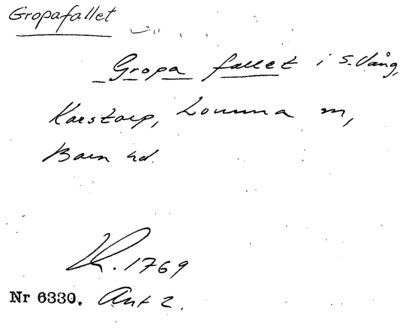 Gropafallet
Gropa fallet i S. Vång,
Karstorp, Lomma sn,
Bara hd.
K. 1769
Nr 6330. Ant 2.